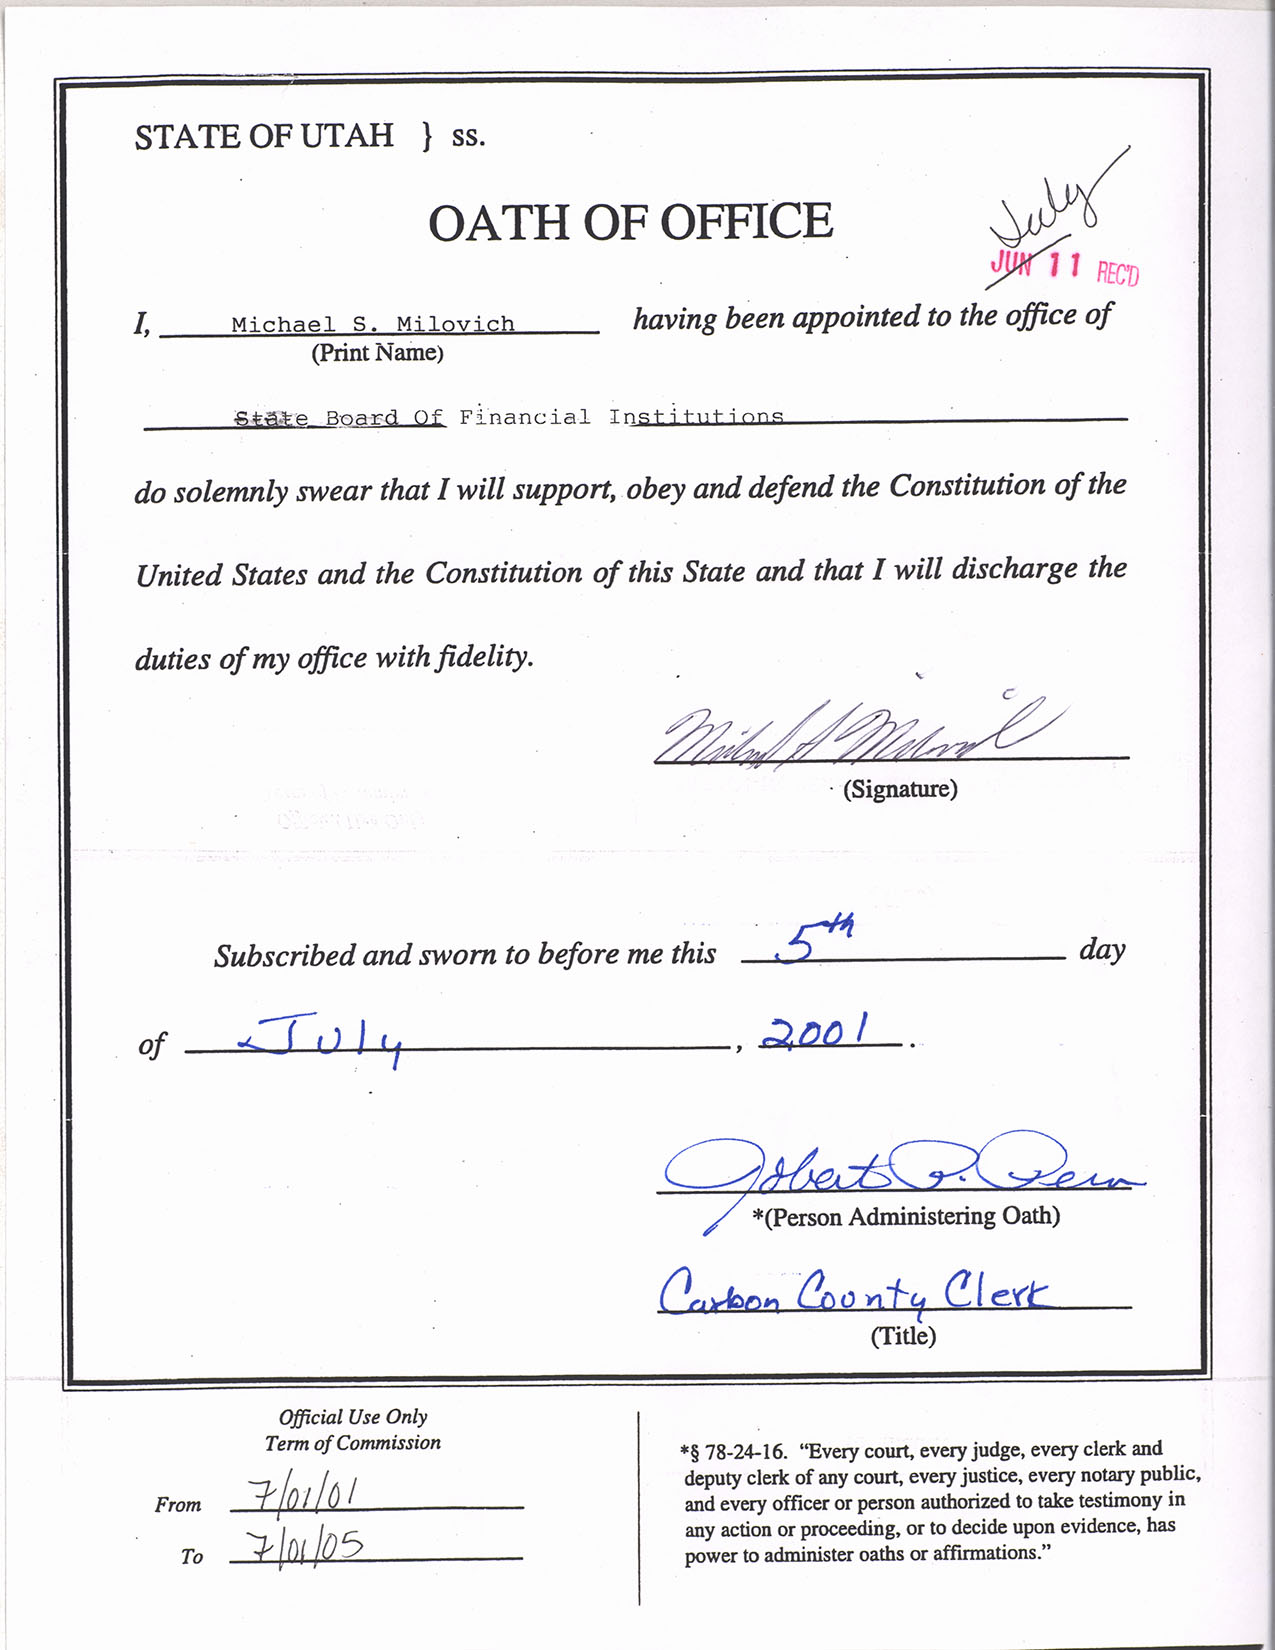 STATE OF UTAH } ss.
OATH OF OFFICE
July
JUN 11 REC'D
I, Michael S. Milovich having been appointed to the office of
(Print Name)
State Board Of Financial Institutions
do solemnly swear that I will support, obey and defend the Constitution of the
United States and the Constitution of this State and that I will discharge the
duties of my office with fidelity.
Michael S Milovich
(Signature)
Subscribed and sworn to before me this 5th day
of July, 2001.
Robert P. Pero
*(Person Administering Oath)
Carbon County Clerk
(Title)
Official Use Only
Term of Commission
From 7/01/01
To 7/01/05
*§ 78-24-16. “Every court, every judge, every clerk and
deputy clerk of any court, every justice, every notary public,
and every officer or person authorized to take testimony in
any action or proceeding, or to decide upon evidence, has
power to administer oaths or affirmations.”